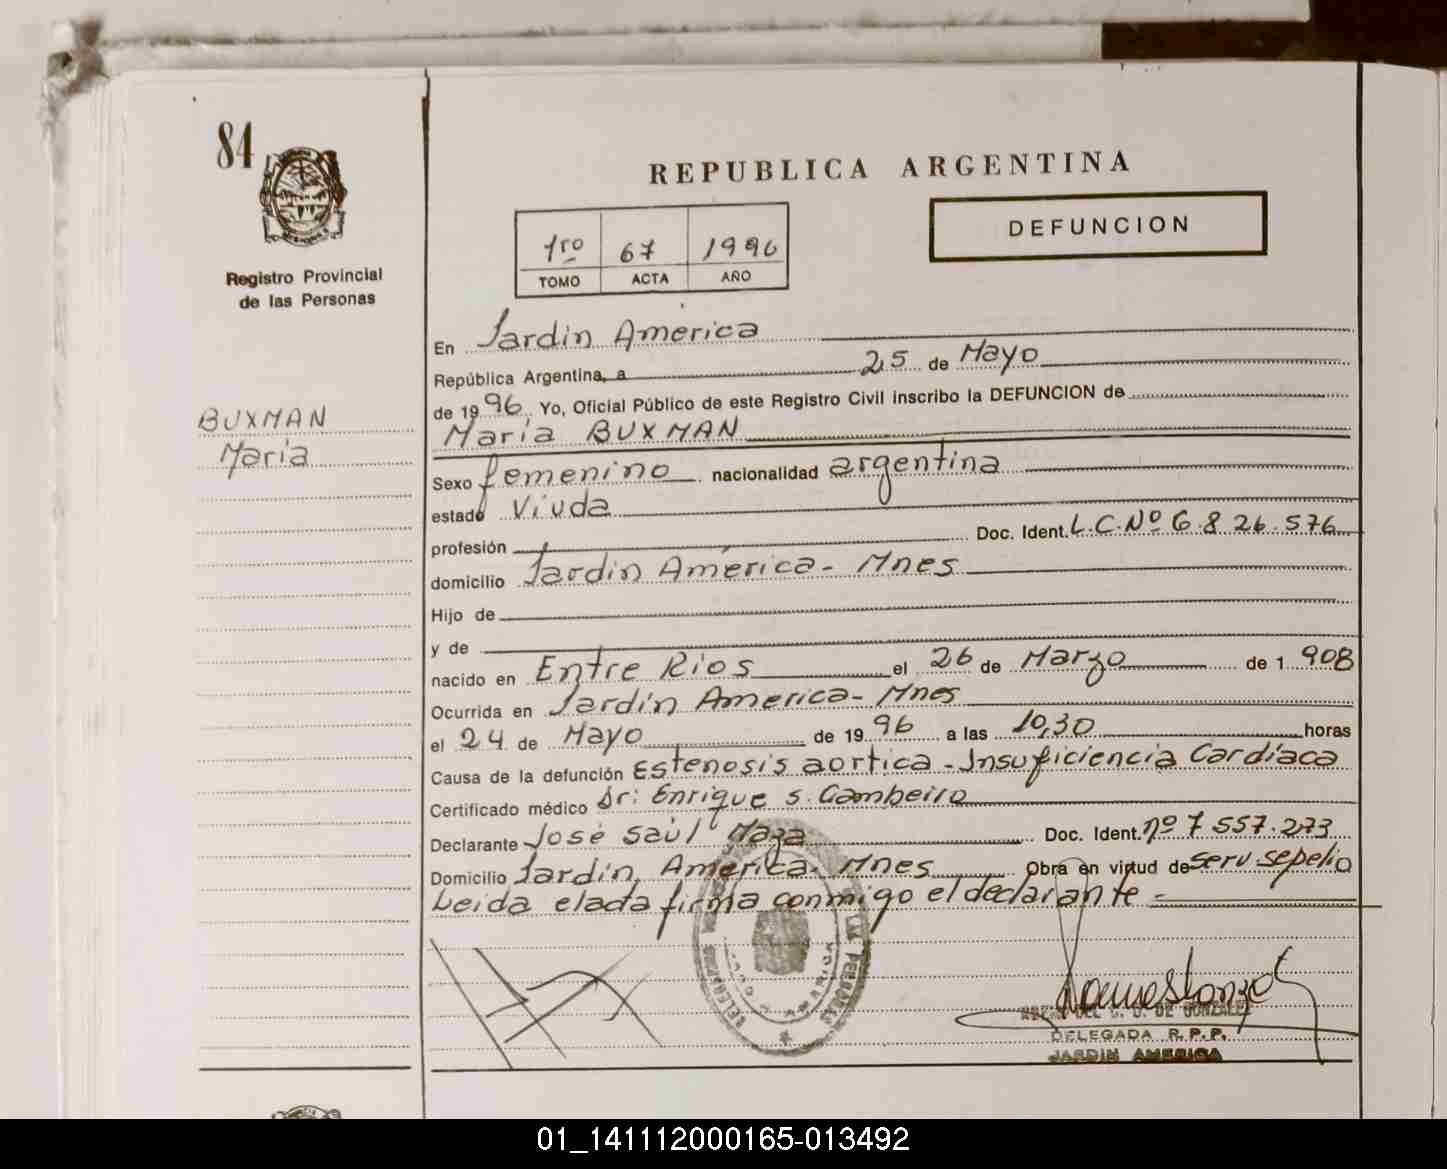 84
REPUBLICA ARGENTINA
DEFUNCION
1ro 67 1996
TOMO ACTA AÑO
Registro Provincial
de las Personas
BUXMAN
María
En Jardín América
República Argentina, a 25 de Mayo
de 1996 Yo, Oficial Público de este Registro Civil inscribo la DEFUNCION de
María BUXMAN
Sexo femenino nacionalidad argentina
estado Viuda
profesión Doc. Ident. L.C.Nº 6.826.576
domicilio Jardín América - Mnes
Hijo de
y de
nacido en Entre Ríos el 26 de Marzo de 1908
Ocurrida en Jardín America - Mnes
el 24 de Mayo de 1996 a las 10,30 horas
Causa de la defunción Estenosis aortica - Insuficiencia Cardíaca
Certificado médico Dr: Enrique S. Gambeiro
Declarante José Saúl Maza Doc. Ident. nº 7 557.273
Domicilio Jardín America - Mnes Obra en virtud de serv. sepelio
Leida el acta firma conmigo el declarante -
DE GONZALEZ
DELEGADA R.P.P.
JARDIN AMERICA
01_141112000165-013492